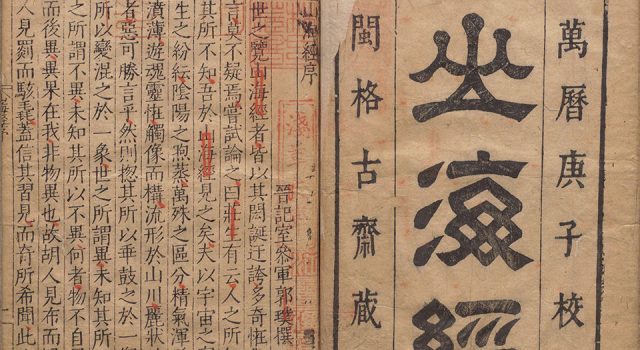 萬曆庚子校
山海經
閩格古齋藏
山海經序
晉記室參軍郭璞撰
世之覽山海經者皆以其閎誕迂誇多奇怪
言莫不疑焉嘗試論之曰莊生有云人之所
其所不知吾於山海經見之矣夫以宇宙之
生之紛紜陰陽之煦蒸萬殊之區分精氣渾
濆薄遊魂靈怪觸像而構流形於山川麗狀
者惡可勝言乎然則摠其所以乖鼓之於一
所以變混之於一象世之所謂異未知其所
之所謂不異未知其所以不異何者物不自
而後異異果在我非物異也故胡人見布而
人見罽而駭毳蓋信其習見而奇所希聞此